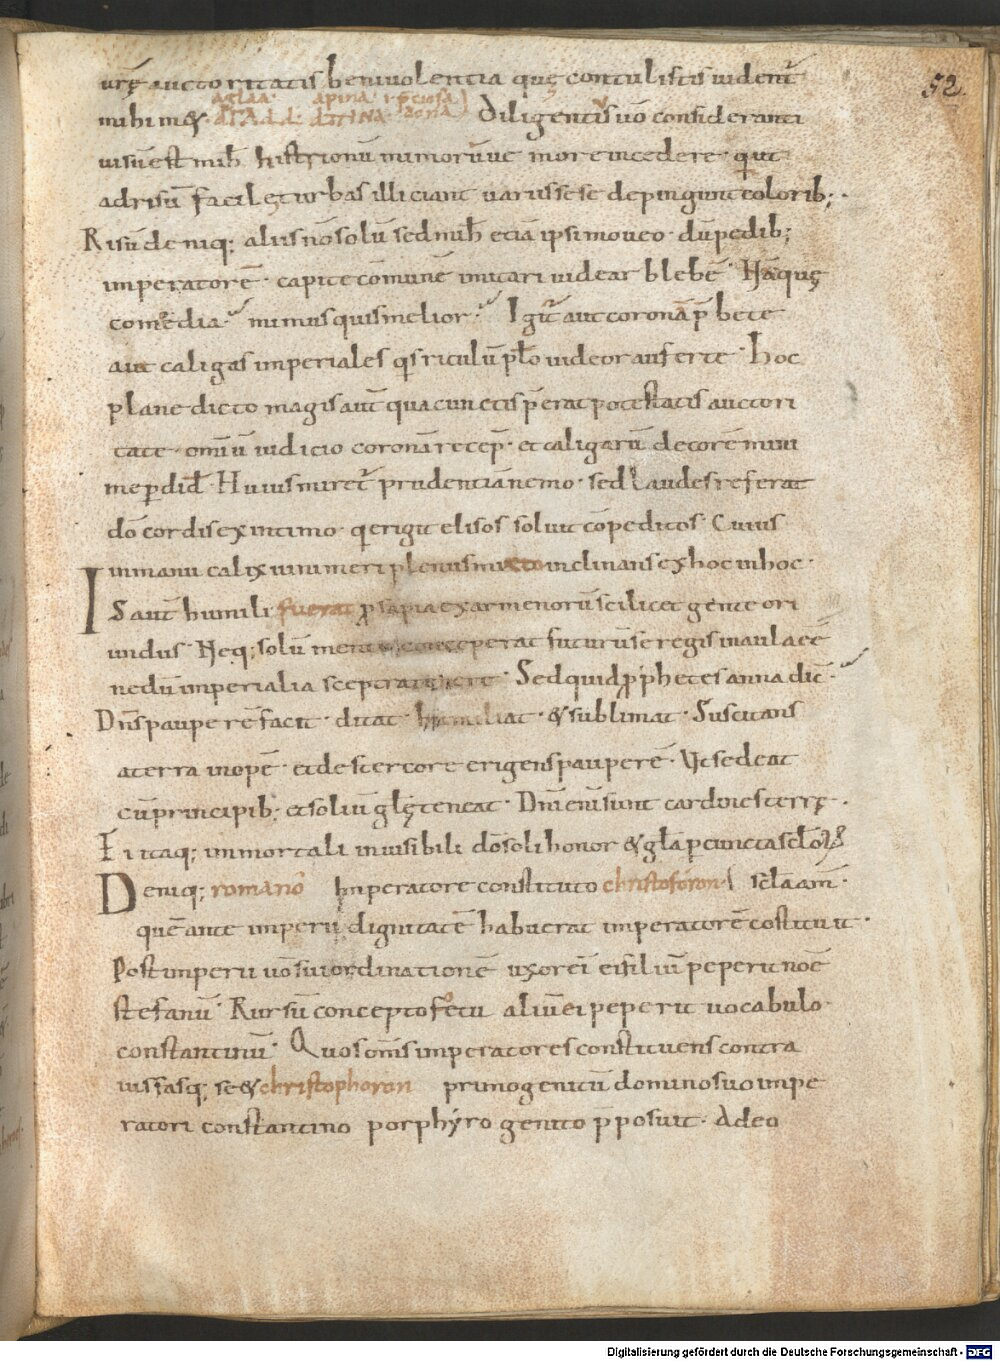 52
urę auctoritatis beniuolentia quę contulistis uident̄
aglaa· apina· i p̄ciosa
mihi in&· diligentiu͛s uō consideranti
uisū est mih̄ histrionū mimorūue more incedere· qui
ad risū facilę turbas illiciant uariis sese depingunt colorib;·
Risū deniq; aliis nō solū sed mih̄ etiā ipsi moueo· dū pedib;
imperatorē· capite cōmunē imitari uidear blebē· Hāquę
comedia· mimus quis melior· Igit͛ aut coronā p̄bete
aut caligas imperiales q̄s riculū plo uideor auferte· Hoc
plane dicto magis aut̄ qua cunctis p̄erat potestatis auctori
tate· omiū iudicio coronā recep̄· et caligarū decorē mini
me perdid̄· Huius miret͛ prudentiā nemo· sed laudes referat
dō cordis ex intimo· q erigit elisos soluit cōpeditos· Cuius
in manu calix uini meri plenus mixto inclinans ex hoc in hoc·
Is aut̄ humili fuerat prosapia ex armenorū scilicet gente ori
undus· Neq; solū mente conceperat futurū se regis in aula eē
nedū imperialia sceptra Sed quid prophetes anna dic̄·
Dn̄s pauperē facit· ditat· humiliat· & sublimat· Suscitans
a terra inopē· et de stercore erigens pauperē· Ut sedeat
cū principib; et soliū glę teneat· Dn̄i enī sunt cardines terrę·
Ei itaq; immortali inuisibili dō soli honor & gla p cuncta sclo⁊
Deniq; romano Imperatore constituto christoforon scla am̄·
quē ante imperii dignitatē habuerat imperatorē cōstituit·
Post imperii uō sui ordinationē uxor ei filiū peperit noē
stefanū· Rursū concepto fetu aliū ei peperit uocabulo·
constantinū· Quos om̄s imperatores constituens contra
ius fasq; se & christophoron primogenitū domino suo impe
ratori constantino porphyro genito p̄posuit· Adeo
Digitalisierung gefördert durch die Deutsche Forschungsgemeinschaft - DFG